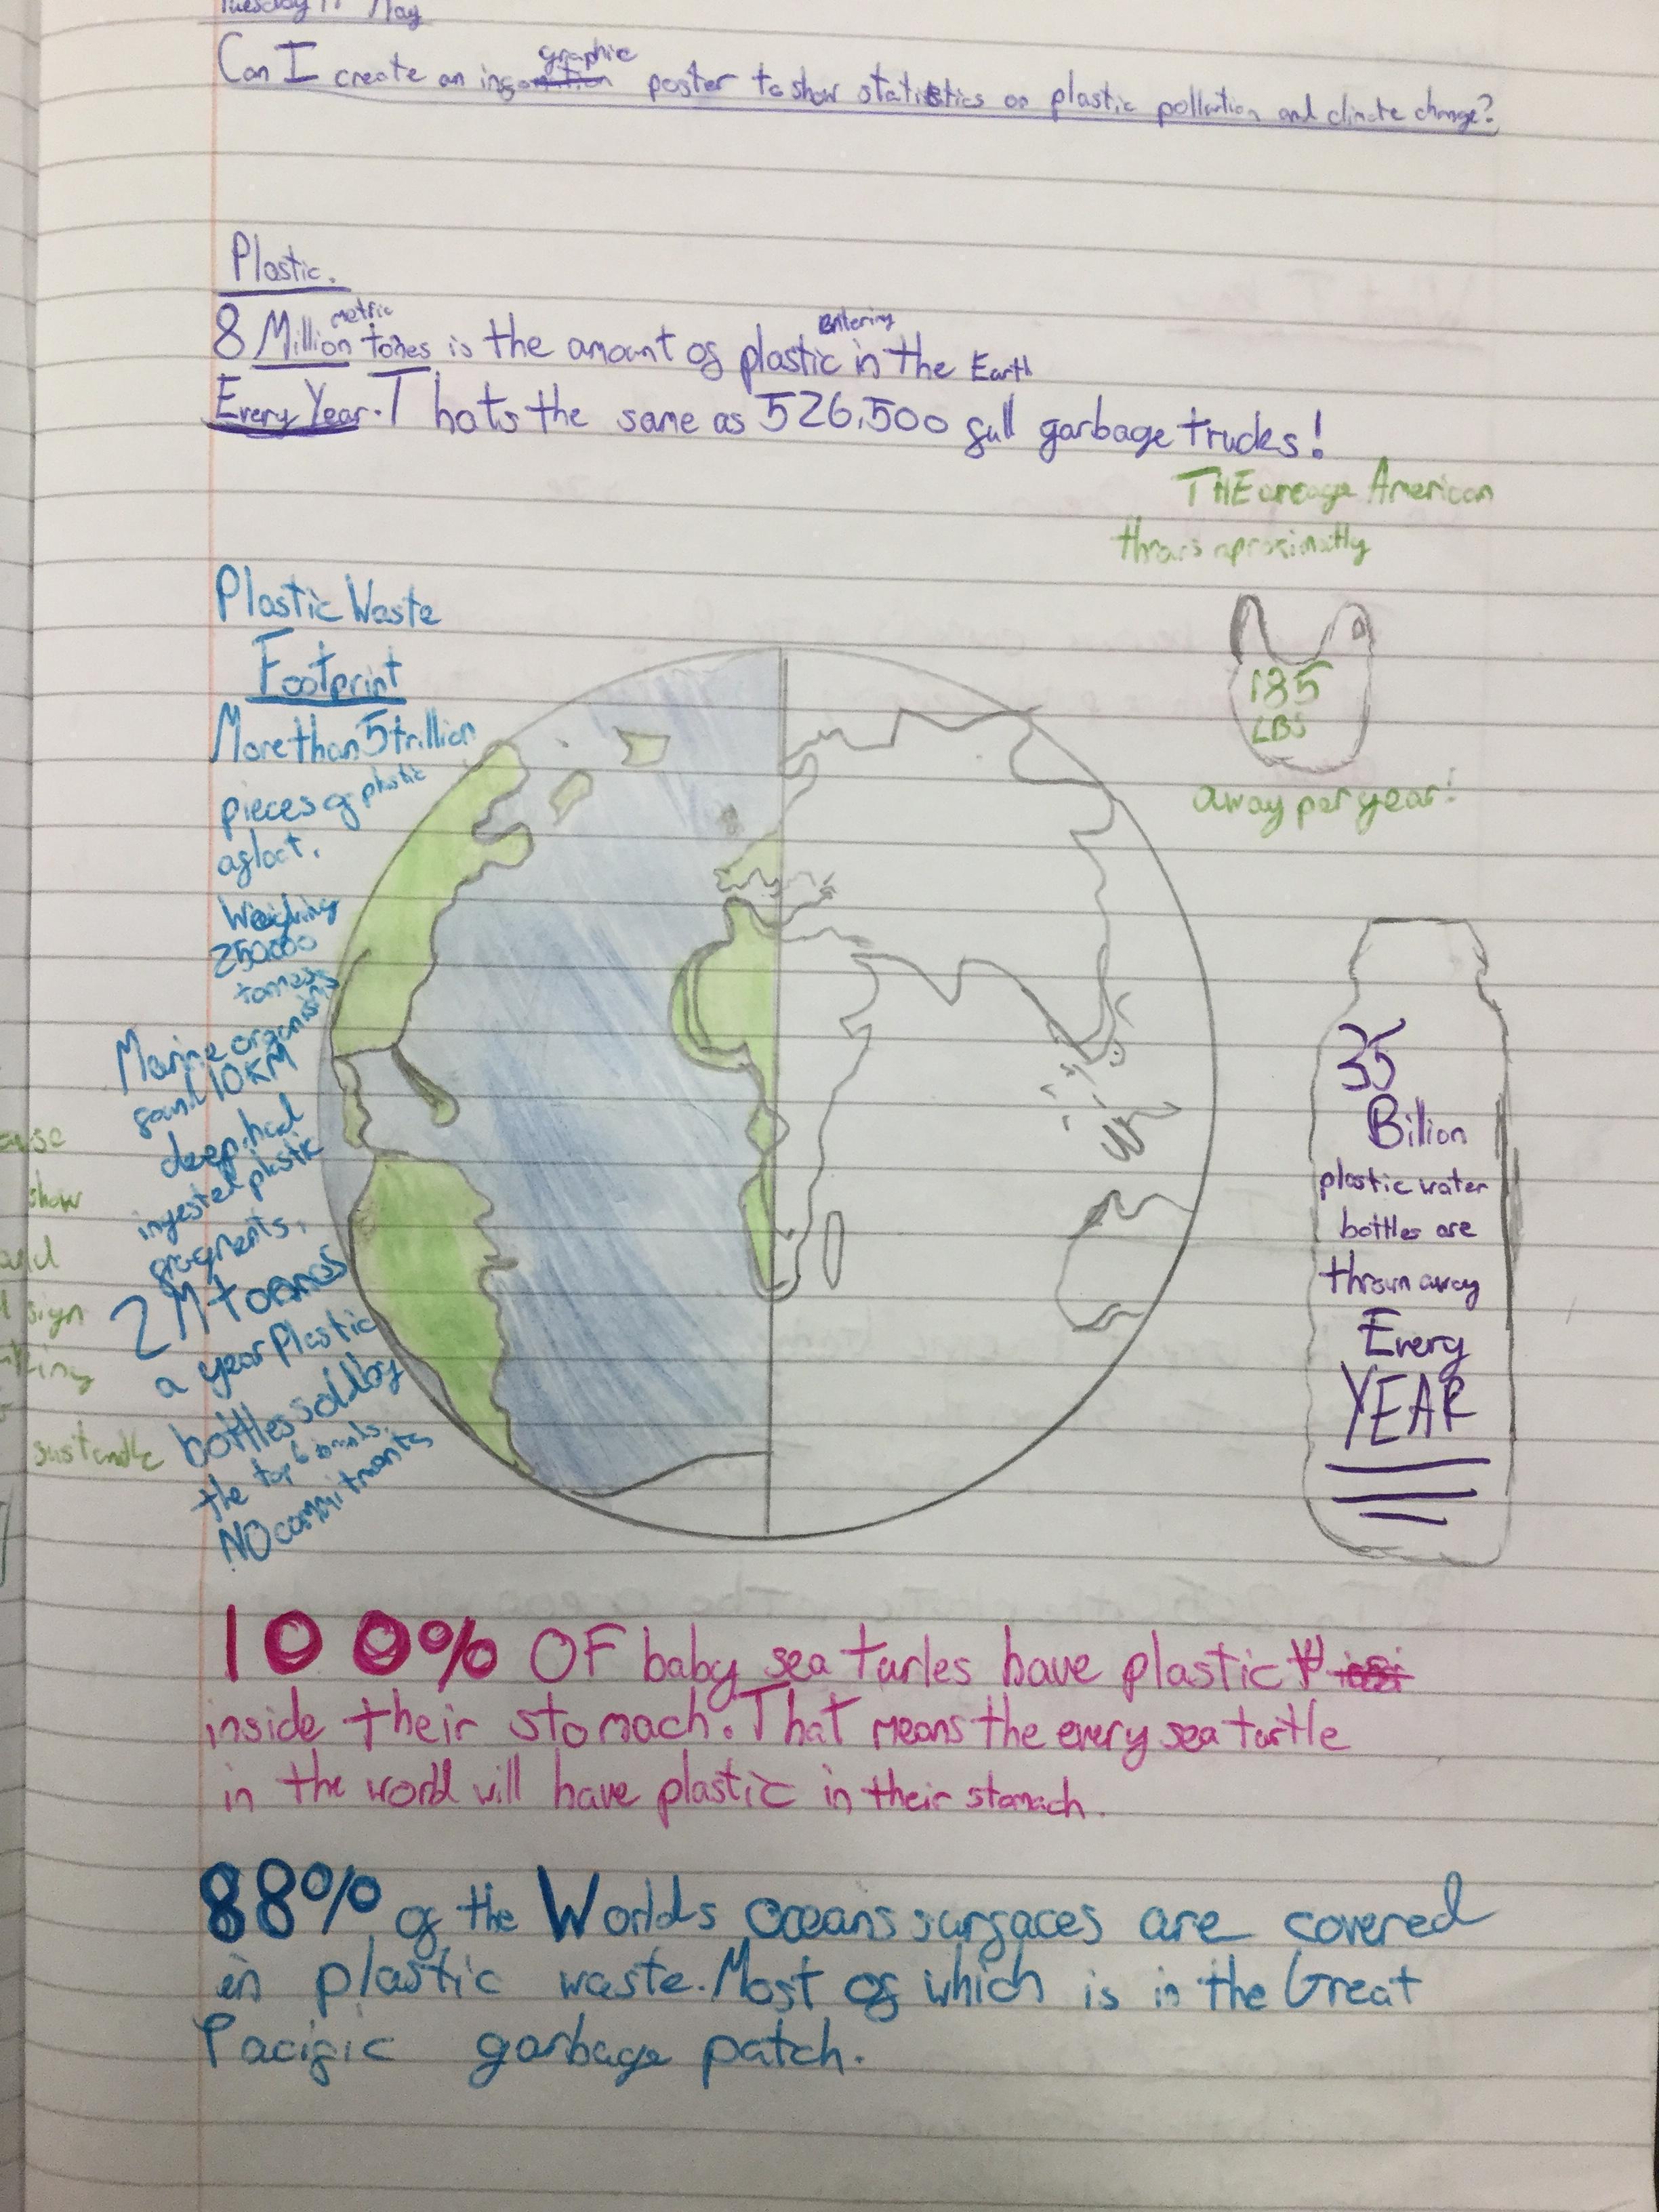 Tuesday 1 May
Can I create an infographic poster to show statistics on plastic pollution and climate change?
Plastic.
8 Million metric tones is the amount of plastic entering in the Earth
Every Year. Thats the same as 526,500 full garbage trucks!
THE average American
throws aproximatly
185
LBS
away per year!
Plastic Waste
Footprint
More than 5 trillion
pieces of plastic
afloat.
Weighing
250000
tonnes
Marine organisms
found 10KM
deep, had
ingested plastic
fragments.
2M tonnes
a year Plastic
bottles sold by
the top 6 brands.
NO commitments
35
Billion
plastic water
bottles are
thrown away
Every
YEAR
show
sign
sustanble
100% OF baby sea turles have plastic
inside their stomach. That means the every sea turtle
in the world will have plastic in their stomach.
88% of the Worlds oceans surfaces are covered
in plastic waste. Most of which is in the Great
Pacific garbage patch.